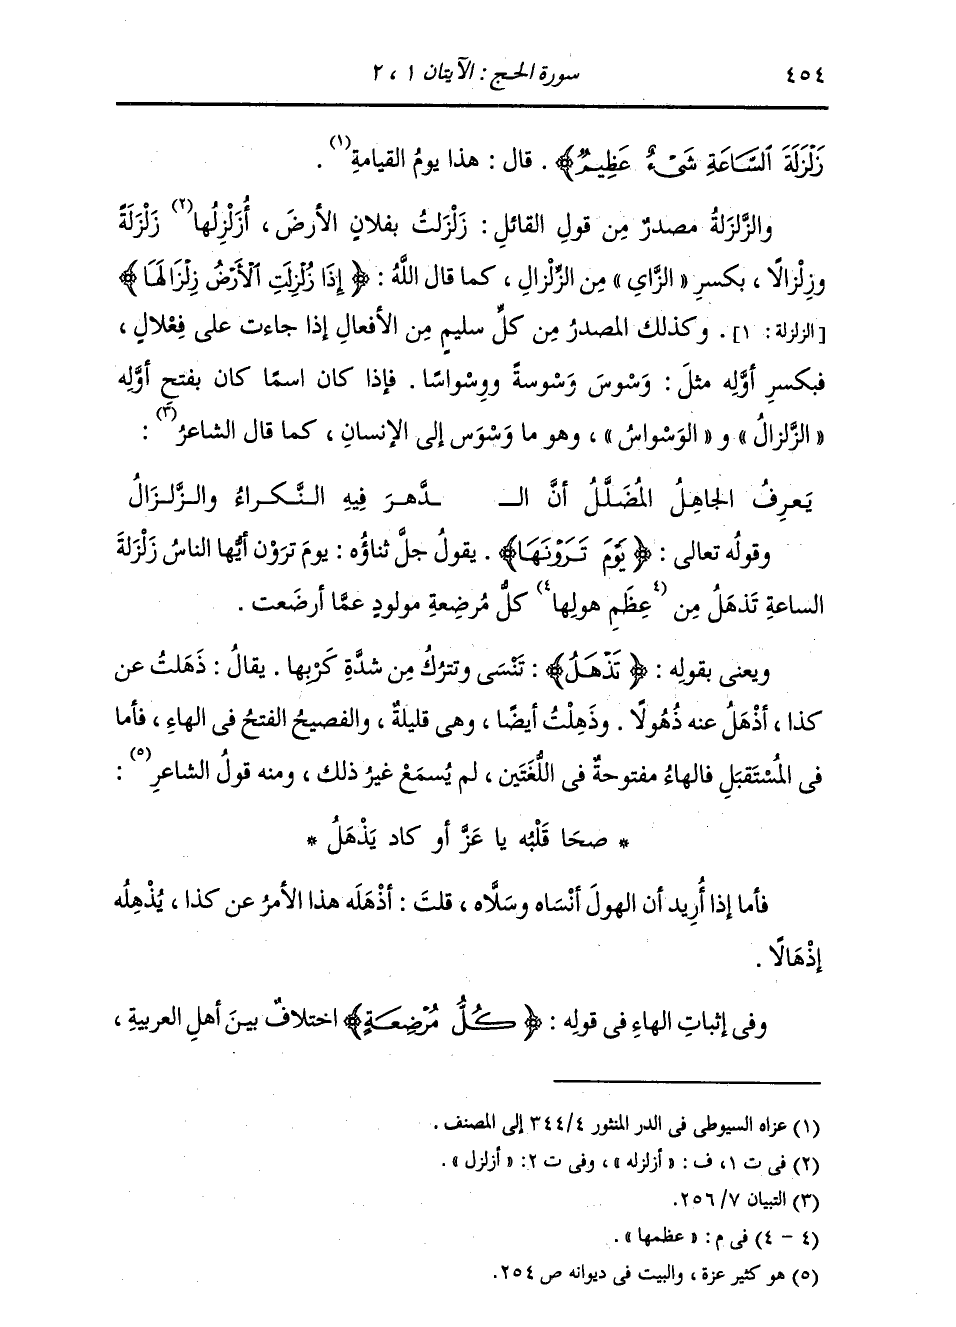 ٤٥٤ سورة الحج : الآيتان ١ ، ٢
زَلْزَلَةَ ٱلسَّاعَةِ شَىْءٌ عَظِيمٌ﴾ . قال : هذا يومُ القيامةِ(١) .
والزَّلزَلةُ مصدرٌ مِن قولِ القائلِ : زَلْزَلتُ بفلانٍ الأرضَ ، أُزَلْزِلُها(٢) زَلْزَلَةً
وزِلْزالًا ، بكسرِ « الزَّاي » مِن الزِّلْزالِ ، كما قال اللَّهُ : ﴿ إِذَا زُلْزِلَتِ ٱلْأَرْضُ زِلْزَالَهَا ﴾
[ الزلزلة : ١ ] . وكذلك المصدرُ مِن كلِّ سليمٍ مِن الأفعالِ إذا جاءت على فِعْلالٍ ،
فبكسرِ أوَّلِه مثلَ : وَسْوسَ وَسْوسةً ووِسْواسًا . فإذا كان اسمًا كان بفتحِ أوَّلِه
« الزَّلزالُ » و « الوَسْواسُ » ، وهو ما وَسْوَس إلى الإنسانِ ، كما قال الشاعرُ(٣) :
يَعرِفُ الجاهِلُ المُضَلَّلُ أنَّ الـ ـدَّهرَ فِيهِ النَّكراءُ والزَّلزالُ
وقولُه تعالى : ﴿ يَوْمَ تَرَوْنَهَا﴾ . يقولُ جلَّ ثناؤُه : يومَ ترَوْن أيُّها الناسُ زَلْزَلةَ
الساعةِ تَذهَلُ مِن (٤عِظَمِ هولِها٤) كلُّ مُرضِعةِ مولودٍ عمَّا أرضَعت .
ويعنى بقولِه : ﴿ تَذْهَلُ﴾ : تَنْسَى وتترُكُ مِن شدَّةِ كَرْبِها . يقالُ : ذَهَلتُ عن
كذا ، أذْهَلُ عنه ذُهُولًا . وذَهِلْتُ أيضًا ، وهى قليلةٌ ، والفصيحُ الفتحُ فى الهاءِ ، فأما
فى المُسْتَقبَلِ فالهاءُ مفتوحةٌ فى اللُّغَتَين ، لم يُسمَعْ غيرُ ذلك ، ومنه قولُ الشاعرِ(٥) :
* صحَا قَلْبُه يا عَزَّ أو كاد يَذْهَلُ *
فأما إذا أُرِيد أن الهولَ أنْسَاه وسَلَّاه ، قلتَ : أذْهَلَه هذا الأمرُ عن كذا ، يُذْهِلُه
إذْهَالًا .
وفى إثباتِ الهاءِ فى قولِه : ﴿ كُلُّ مُرْضِعَةٍ﴾ اختلافٌ بينَ أهلِ العربيةِ ،
(١) عزاه السيوطى فى الدر المنثور ٣٤٤/٤ إلى المصنف .
(٢) فى ت ١، ف : « أزلزله » ، وفى ت ٢: « أزلزل » .
(٣) التبيان ٢٥٦/٧.
(٤ - ٤) فى م : « عظمها » .
(٥) هو كثير عزة ، والبيت فى ديوانه ص ٢٥٤.